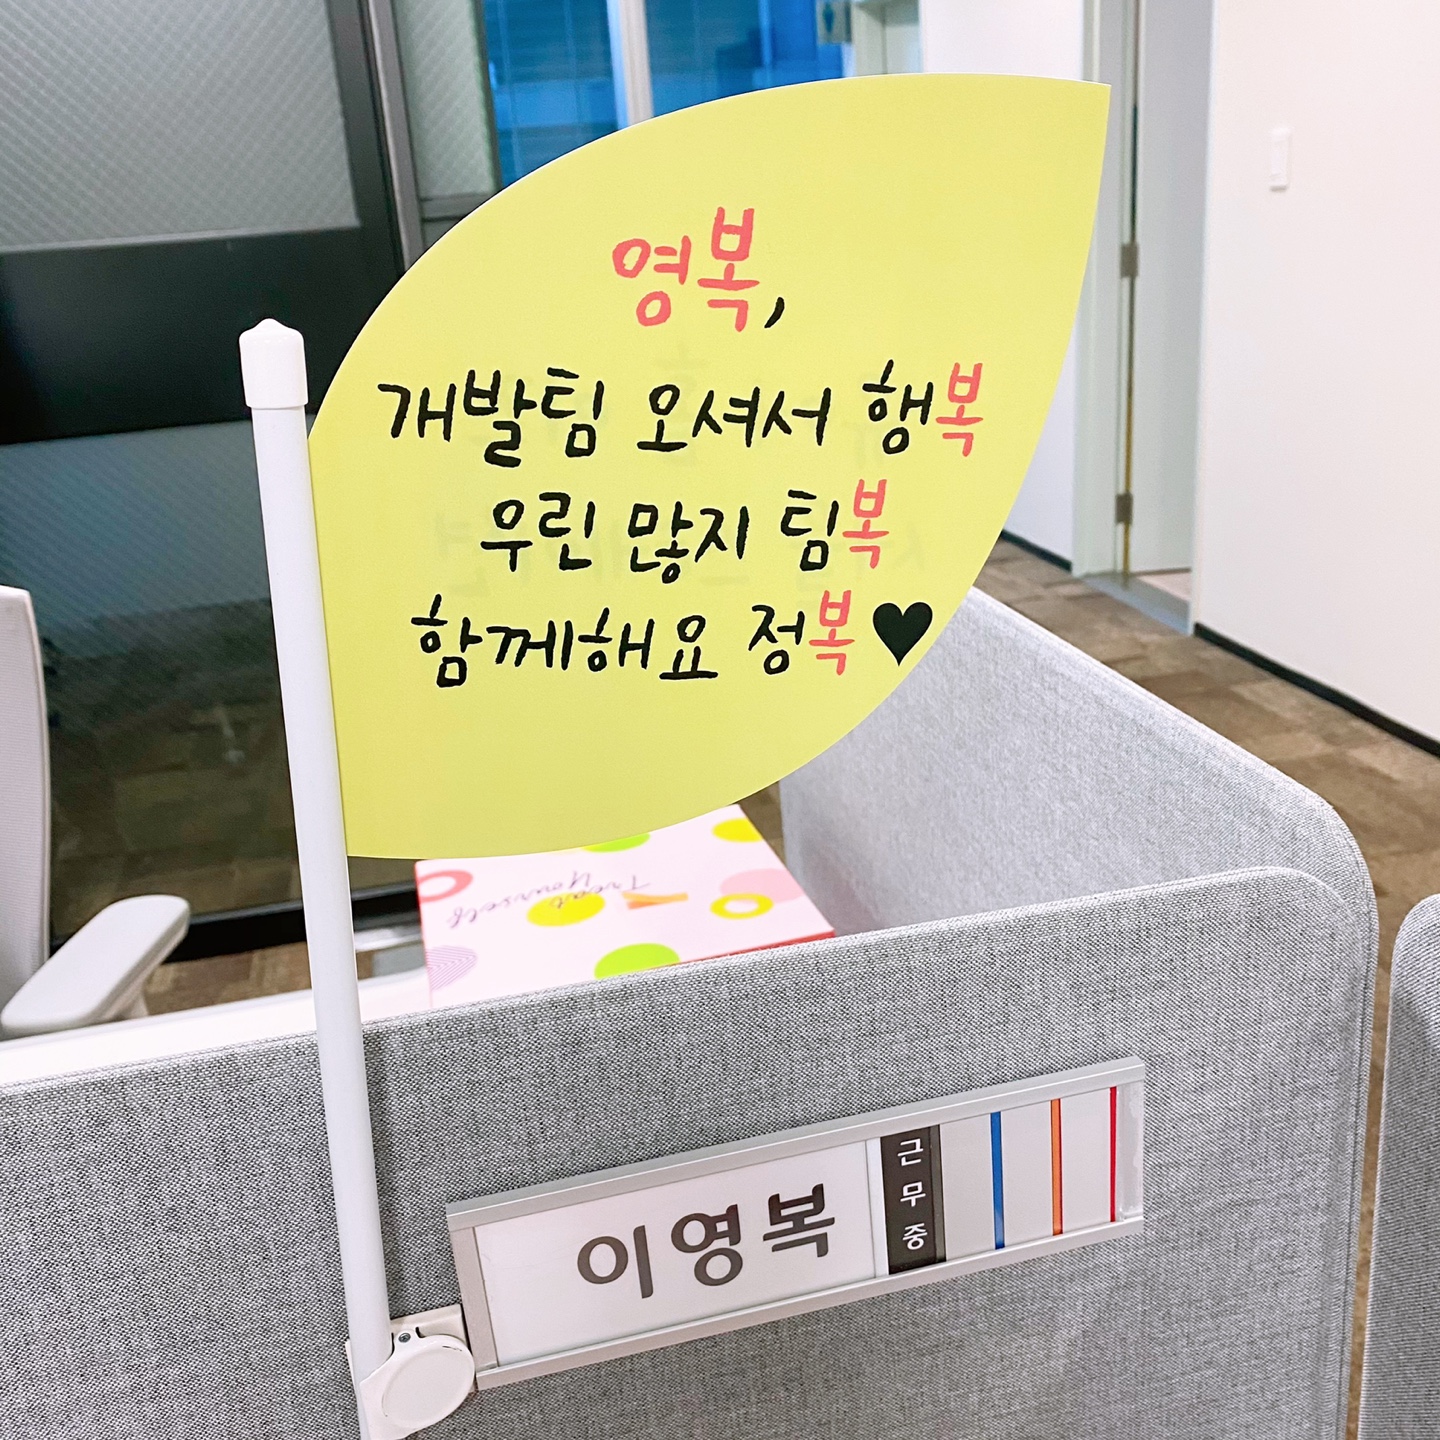 영복,
개발팀 오셔서 행복
우린 많지 팀복
함께해요 정복♥
Treat
Yourself
이영복
근무중